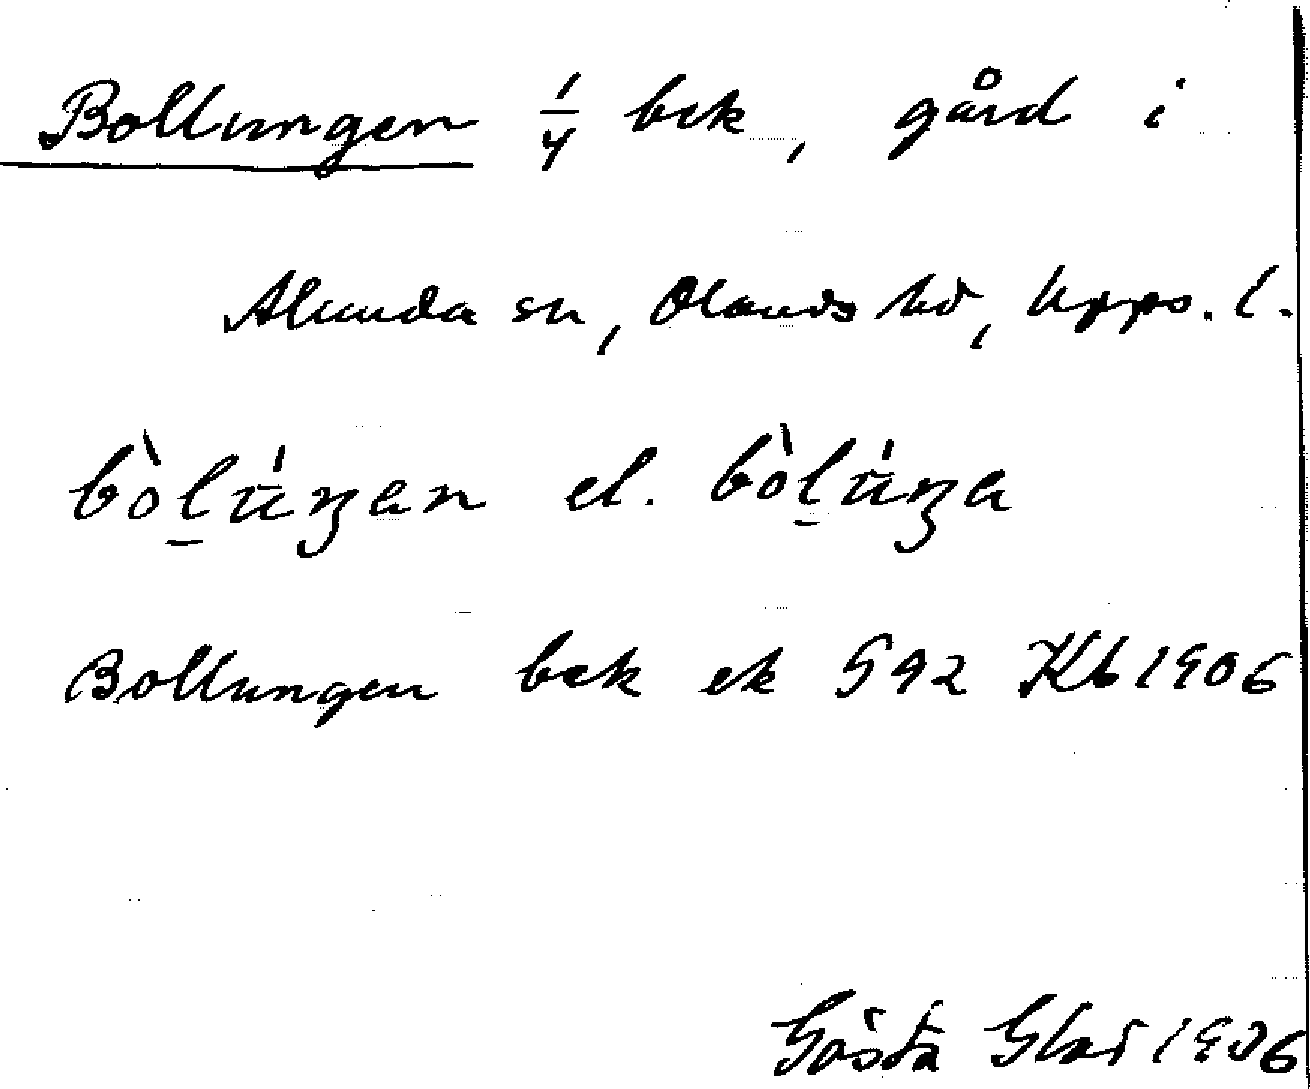 Bollungen 1/4 bek, gård i
Alunda sn, Olands hd, Upps. l.
bòl̠úŋen el. bòl̠úŋa
Bollungen bek ek 592 Kb 1906
Gösta 1906